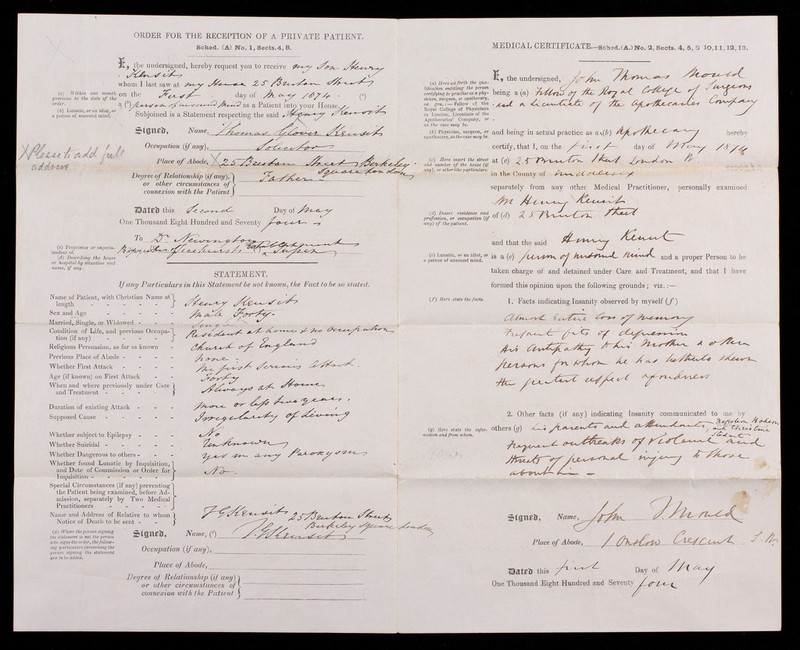 ORDER FOR THE RECEPTION OF A PRIVATE PATIENT.
Sched. (A) No. 1, Sects. 4, 8.
I, the undersigned, hereby request you to receive my Son Henry
Kensit
whom I last saw at my House 25 Bruton Street
(a) Within one month previous to the date of the order.
on the First day of May 1874 (a)
(b) Lunatic, or an idiot, or a person of unsound mind.
a (b) person of unsound mind as a Patient into your House
Subjoined is a Statement respecting the said Henry Kensit
Signed, Name, Thomas Glover Kensit
Occupation (if any), Solicitor
X Please to add full address
Place of Abode, X 25 Bruton Street Berkeley
Square London
Degree of Relationship (if any), or other circumstances of connexion with the Patient } Father
Dated this Second Day of May
One Thousand Eight Hundred and Seventy four
To Dr Newington
(c) Proprietor or superintendent of.
(d) Describing the house or hospital by situation and name, if any.
STATEMENT.
If any Particulars in this Statement be not known, the Fact to be so stated.
Name of Patient, with Christian Name at length } Henry Kensit
Sex and Age Male Forty
Married, Single, or Widowed Single
Condition of Life, and previous Occupation (if any) } Resident at home & no Occupation
Religious Persuasion, as far as known Church of England
Previous Place of Abode home
Whether First Attack The first Serious Attack
Age (if known) on First Attack Forty
When and where previously under Care and Treatment } Always at Home
Duration of existing Attack More or less two years.
Supposed Cause Irregularity of living
Whether subject to Epilepsy No
Whether Suicidal Unknown
Whether Dangerous to others yes in any Paroxysm
Whether found Lunatic by Inquisition, and Date of Commission or Order for Inquisition } No
Special Circumstances (if any) preventing the Patient being examined, before Admission, separately by Two Medical Practitioners }
Name and Address of Relative to whom Notice of Death to be sent } T G Kensit 25 Bruton Street
Berkeley Square London
(e) Where the person signing the statement is not the person who signs the order, the following particulars concerning the person signing the statement are to be added.
Signed, Name, (e) T. G. Kensit
Occupation (if any),
Place of Abode,
Degree of Relationship (if any) or other circumstances of connexion with the Patient }
MEDICAL CERTIFICATE.—Sched. (A.) No. 2, Sects. 4, 5, 8, 10, 11, 12, 13.
I, the undersigned, John Thomas Mould
(a) Here set forth the qualification entitling the person certifying to practise as a physician, surgeon, or apothecary, ex gra.:—Fellow of the Royal College of Physicians in London, Licentiate of the Apothecaries' Company, or as the case may be.
being a (a) Fellow of the Royal College of Surgeons
and a Licentiate of the Apothecaries Company
(b) Physician, surgeon, or apothecary, as the case may be.
and being in actual practice as a (b) Apothecary hereby
certify, that I, on the first day of May 1874
(c) Here insert the street and number of the house (if any), or other like particulars.
at (c) 25 Bruton Street London
in the County of Middlesex
separately from any other Medical Practitioner, personally examined
Mr Henry Kensit
(d) Insert residence and profession, or occupation (if any) of the patient.
of (d) 25 Bruton Street
and that the said Henry Kensit
(e) Lunatic, or an idiot, or a person of unsound mind.
is a (e) person of unsound mind and a proper Person to be
taken charge of and detained under Care and Treatment, and that I have
formed this opinion upon the following grounds; viz.:—
(f) Here state the facts.
1. Facts indicating Insanity observed by myself (f)
Almost entire loss of memory
frequent fits of depression
his antipathy to his Mother & other
persons for whom he has hitherto shewn
the greatest respect or fondness
2. Other facts (if any) indicating Insanity communicated to me by
(g) Here state the information and from whom.
others (g) his parents and attendants, Napoleon Hodson
and Christine
frequent outbreaks of violence and
threats of personal injury to those
about him —
Signed, Name, John T Mould
Place of Abode, 1 Onslow Crescent S.W.
Dated this first Day of May
One Thousand Eight Hundred and Seventy four